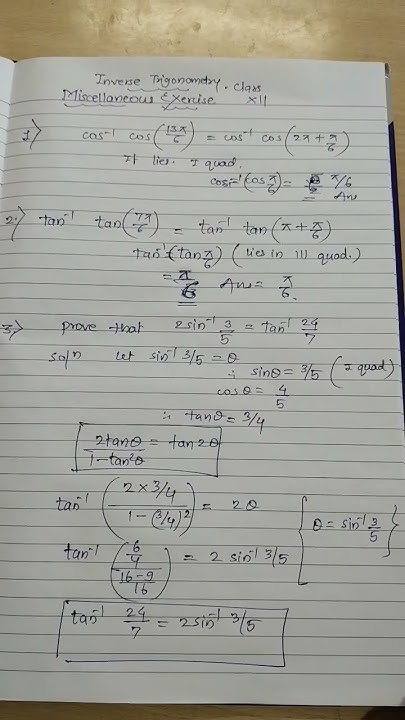 Inverse Trigonometry. Class XII
Miscellaneous Exercise
1) cos⁻¹ cos(13π/6) = cos⁻¹ cos(2π + π/6)
It lies. I quad.
cos⁻¹(cos π/6) = π/6 Ans
2.) tan⁻¹ tan(7π/6) = tan⁻¹ tan(π + π/6)
tan⁻¹(tan π/6) (lies in III quad.)
= π/6 Ans = π/6.
3.) Prove that 2sin⁻¹ 3/5 = tan⁻¹ 24/7
Soln Let sin⁻¹ 3/5 = θ
∴ sinθ = 3/5 (I quad)
cosθ = 4/5
∴ tanθ = 3/4
2tanθ/1-tan²θ = tan2θ
tan⁻¹ (2×3/4 / 1-(3/4)²) = 2θ {θ = sin⁻¹ 3/5}
tan⁻¹ (6/4 / 16-9/16) = 2 sin⁻¹ 3/5
tan⁻¹ 24/7 = 2sin⁻¹ 3/5